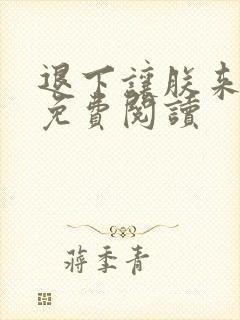 退下讓朕來
免費閱讀
蔣季青